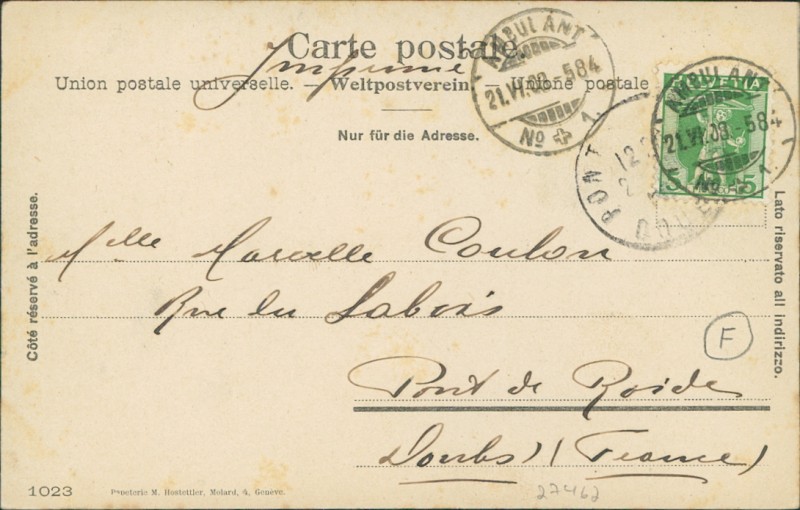 Carte postale.
Imprimé
Union postale universelle. — Weltpostverein. — Unione postale
Nur für die Adresse.
AMBULANT
21.VI.09.-584
No 1.
HELVETIA
5 5
AMBULANT
21.VI.09.-584
No 1.
PONT
12
DOUBS
Côté réservé à l'adresse.
Lato riservato all indirizzo.
Mlle Marcelle Coulon
Rue du Labois
Pont de Roide
Doubs) (France)
F
1023
Papeterie M. Hostettler, Molard, 4, Genève.
27462